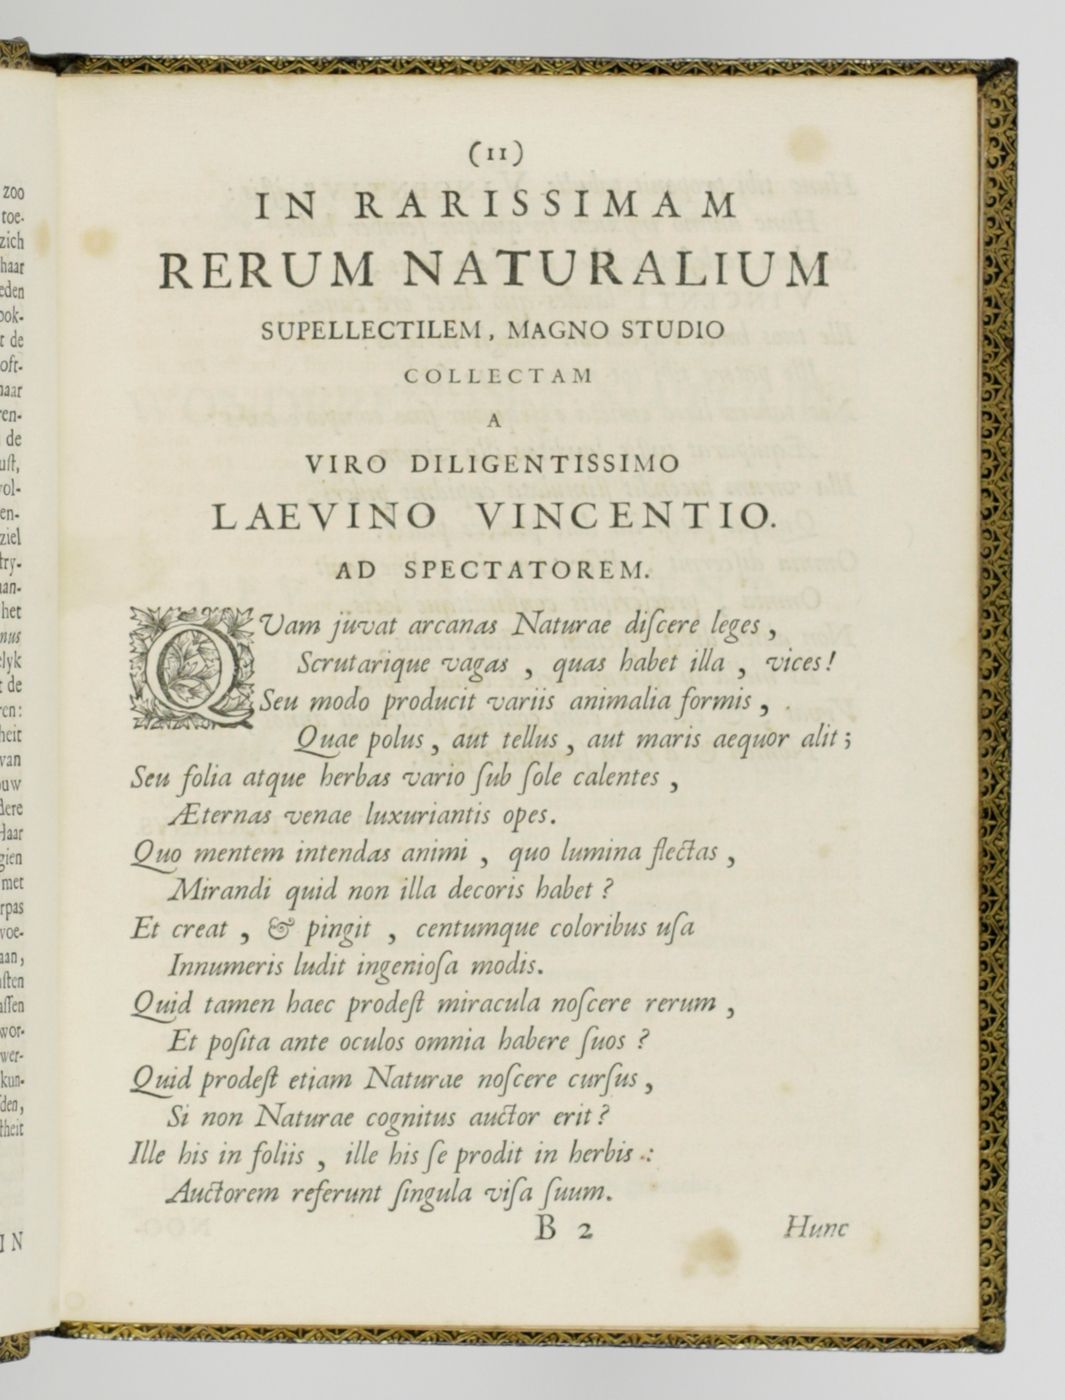 zoo
toe-
zich
haar
eden
ook-
t de
oft-
naar
ren-
de
uſt,
vol-
en-
ziel
try-
aan-
het
nus
elyk
t de
ren:
heit
van
ouw
dere
Haar
gien
met
rpas
voe-
aan,
aſten
aſſen
wor-
wer-
kun-
den,
theit
IN
(11)
IN RARISSIMAM
RERUM NATURALIUM
SUPELLECTILEM, MAGNO STUDIO
COLLECTAM
A
VIRO DILIGENTISSIMO
LAEVINO VINCENTIO.
AD SPECTATOREM.
QUam juvat arcanas Naturae diſcere leges,
Scrutarique vagas, quas habet illa, vices!
Seu modo producit variis animalia formis,
Quae polus, aut tellus, aut maris aequor alit;
Seu folia atque herbas vario ſub ſole calentes,
Æternas venae luxuriantis opes.
Quo mentem intendas animi, quo lumina flectas,
Mirandi quid non illa decoris habet?
Et creat, & pingit, centumque coloribus uſa
Innumeris ludit ingenioſa modis.
Quid tamen haec prodeſt miracula noſcere rerum,
Et poſita ante oculos omnia habere ſuos?
Quid prodeſt etiam Naturae noſcere curſus,
Si non Naturae cognitus auctor erit?
Ille his in foliis, ille his ſe prodit in herbis:
Auctorem referunt ſingula viſa ſuum.
B 2 Hunc